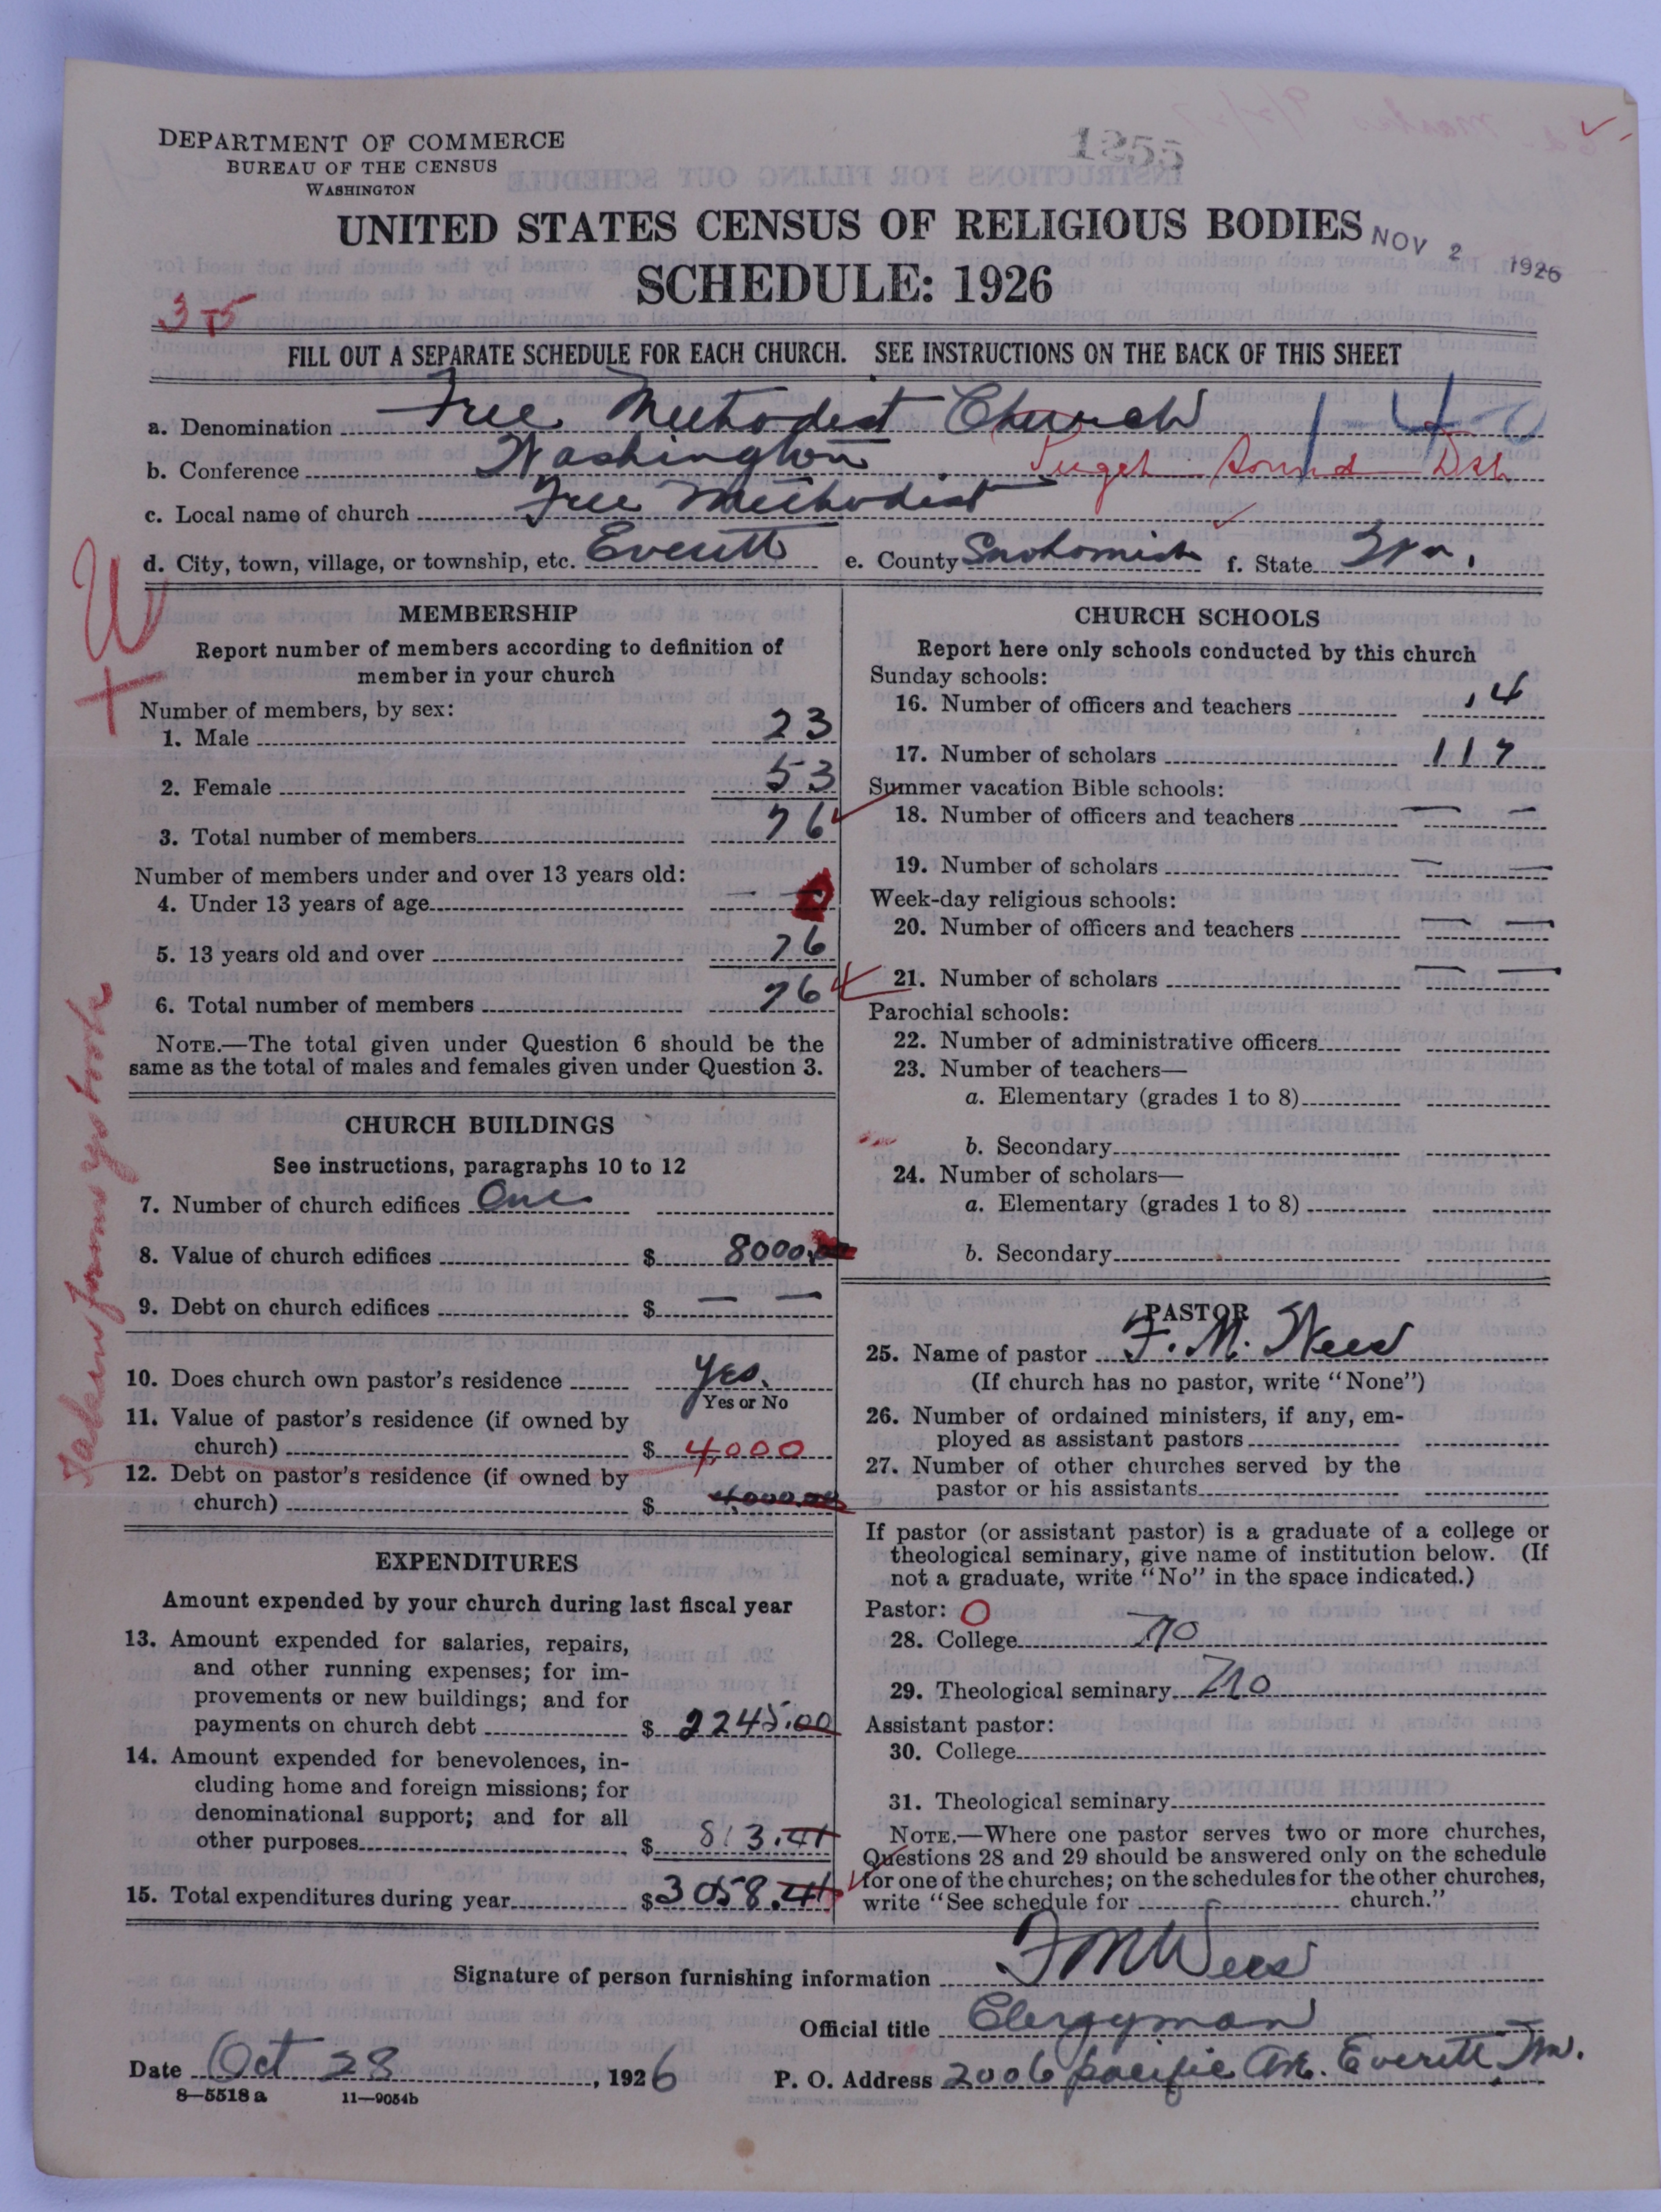 DEPARTMENT OF COMMERCE
BUREAU OF THE CENSUS
WASHINGTON
1855
UNITED STATES CENSUS OF RELIGIOUS BODIES
NOV 2 1926
SCHEDULE: 1926
375
FILL OUT A SEPARATE SCHEDULE FOR EACH CHURCH. SEE INSTRUCTIONS ON THE BACK OF THIS SHEET
a. Denomination Free Methodist Church 1-40
b. Conference Washington Puget Sound Dst
c. Local name of church Free Methodist
d. City, town, village, or township, etc. Everett e. County Snohomish f. State Wn.
MEMBERSHIP
Report number of members according to definition of
member in your church
Number of members, by sex:
1. Male 23
2. Female 53
3. Total number of members 76
Number of members under and over 13 years old:
4. Under 13 years of age — 0
5. 13 years old and over 76
6. Total number of members 76
NOTE.—The total given under Question 6 should be the
same as the total of males and females given under Question 3.
CHURCH BUILDINGS
See instructions, paragraphs 10 to 12
7. Number of church edifices One
8. Value of church edifices $ 8000.00
9. Debt on church edifices $ — —
10. Does church own pastor's residence Yes.
Yes or No
11. Value of pastor's residence (if owned by
church) $ 4,000
12. Debt on pastor's residence (if owned by
church) $ 4,000.00
EXPENDITURES
Amount expended by your church during last fiscal year
13. Amount expended for salaries, repairs,
and other running expenses; for im-
provements or new buildings; and for
payments on church debt $ 2245.00
14. Amount expended for benevolences, in-
cluding home and foreign missions; for
denominational support; and for all
other purposes $ 813.41
15. Total expenditures during year $ 3058.41
CHURCH SCHOOLS
Report here only schools conducted by this church
Sunday schools:
16. Number of officers and teachers 14
17. Number of scholars 117
Summer vacation Bible schools:
18. Number of officers and teachers — —
19. Number of scholars — —
Week-day religious schools:
20. Number of officers and teachers — —
21. Number of scholars — —
Parochial schools:
22. Number of administrative officers
23. Number of teachers—
a. Elementary (grades 1 to 8)
b. Secondary
24. Number of scholars—
a. Elementary (grades 1 to 8)
b. Secondary
PASTOR
25. Name of pastor F. M. Wees
(If church has no pastor, write "None")
26. Number of ordained ministers, if any, em-
ployed as assistant pastors
27. Number of other churches served by the
pastor or his assistants
If pastor (or assistant pastor) is a graduate of a college or
theological seminary, give name of institution below. (If
not a graduate, write "No" in the space indicated.)
Pastor: 0
28. College no
29. Theological seminary no
Assistant pastor:
30. College
31. Theological seminary
NOTE.—Where one pastor serves two or more churches,
Questions 28 and 29 should be answered only on the schedule
for one of the churches; on the schedules for the other churches,
write "See schedule for church."
Signature of person furnishing information F M Wees
Official title Clergyman
Date Oct 28, 1926 P. O. Address 2006 pacific Ave. Everett, Wn.
8—5518 a 11—9054b